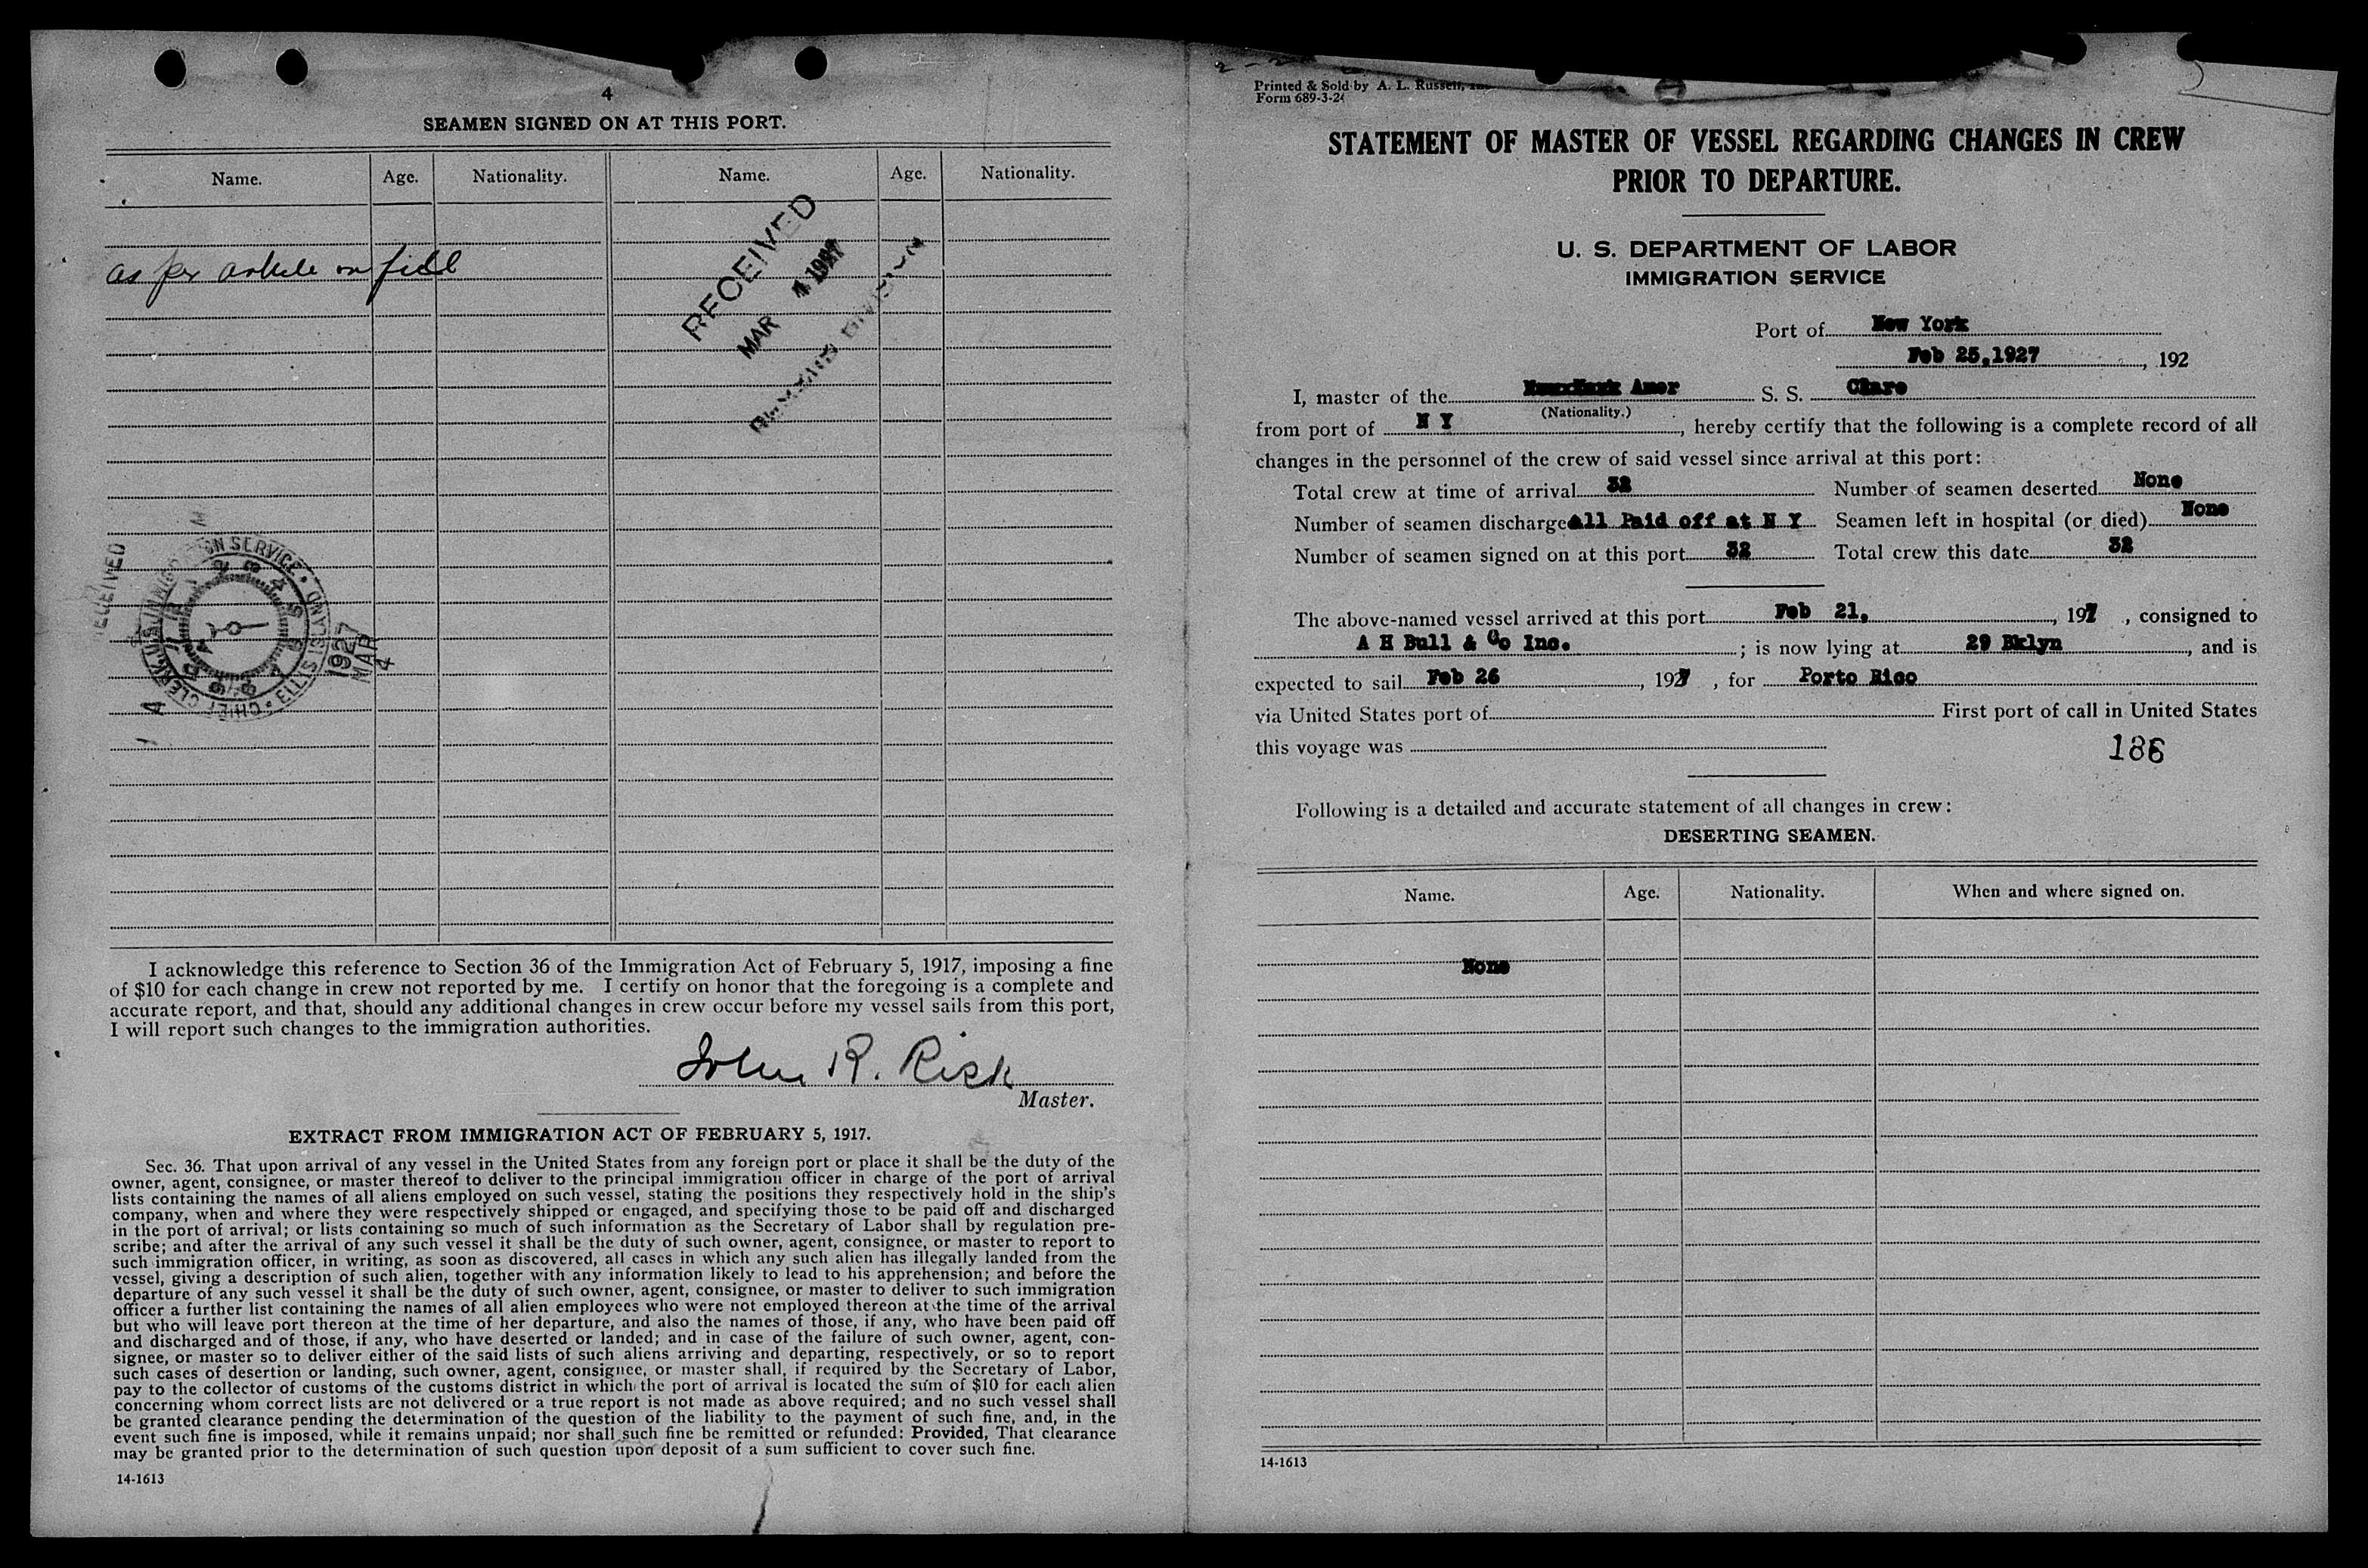 4
SEAMEN SIGNED ON AT THIS PORT.
Name. Age. Nationality. Name. Age. Nationality.
as per article on file
RECEIVED
MAR 4 1927
DIVISION
RECEIVED
U.S. IMMIGRATION SERVICE • ELLIS ISLAND • CHIEF CLERK
1927
MAR
4
I acknowledge this reference to Section 36 of the Immigration Act of February 5, 1917, imposing a fine
of $10 for each change in crew not reported by me. I certify on honor that the foregoing is a complete and
accurate report, and that, should any additional changes in crew occur before my vessel sails from this port,
I will report such changes to the immigration authorities.
John R. Risk
Master.
EXTRACT FROM IMMIGRATION ACT OF FEBRUARY 5, 1917.
Sec. 36. That upon arrival of any vessel in the United States from any foreign port or place it shall be the duty of the
owner, agent, consignee, or master thereof to deliver to the principal immigration officer in charge of the port of arrival
lists containing the names of all aliens employed on such vessel, stating the positions they respectively hold in the ship's
company, when and where they were respectively shipped or engaged, and specifying those to be paid off and discharged
in the port of arrival; or lists containing so much of such information as the Secretary of Labor shall by regulation pre-
scribe; and after the arrival of any such vessel it shall be the duty of such owner, agent, consignee, or master to report to
such immigration officer, in writing, as soon as discovered, all cases in which any such alien has illegally landed from the
vessel, giving a description of such alien, together with any information likely to lead to his apprehension; and before the
departure of any such vessel it shall be the duty of such owner, agent, consignee, or master to deliver to such immigration
officer a further list containing the names of all alien employees who were not employed thereon at the time of the arrival
but who will leave port thereon at the time of her departure, and also the names of those, if any, who have been paid off
and discharged and of those, if any, who have deserted or landed; and in case of the failure of such owner, agent, con-
signee, or master so to deliver either of the said lists of such aliens arriving and departing, respectively, or so to report
such cases of desertion or landing, such owner, agent, consignee, or master shall, if required by the Secretary of Labor,
pay to the collector of customs of the customs district in which the port of arrival is located the sum of $10 for each alien
concerning whom correct lists are not delivered or a true report is not made as above required; and no such vessel shall
be granted clearance pending the determination of the question of the liability to the payment of such fine, and, in the
event such fine is imposed, while it remains unpaid; nor shall such fine be remitted or refunded: Provided, That clearance
may be granted prior to the determination of such question upon deposit of a sum sufficient to cover such fine.
14-1613
Printed & Sold by A. L. Russell,
Form 689-3-24
STATEMENT OF MASTER OF VESSEL REGARDING CHANGES IN CREW
PRIOR TO DEPARTURE.
U. S. DEPARTMENT OF LABOR
IMMIGRATION SERVICE
Port of New York
Feb 25,1927, 192
I, master of the Amer S. S. Clare
(Nationality.)
from port of N Y, hereby certify that the following is a complete record of all
changes in the personnel of the crew of said vessel since arrival at this port:
Total crew at time of arrival 32 Number of seamen deserted None
Number of seamen discharge All Paid off at N Y Seamen left in hospital (or died) None
Number of seamen signed on at this port 32 Total crew this date 32
The above-named vessel arrived at this port Feb 21, , 197 , consigned to
A H Bull & Co Inc. ; is now lying at 29 Bklyn , and is
expected to sail Feb 26 , 1927 , for Porto Rico
via United States port of First port of call in United States
this voyage was
186
Following is a detailed and accurate statement of all changes in crew:
DESERTING SEAMEN.
Name. Age. Nationality. When and where signed on.
None
14-1613